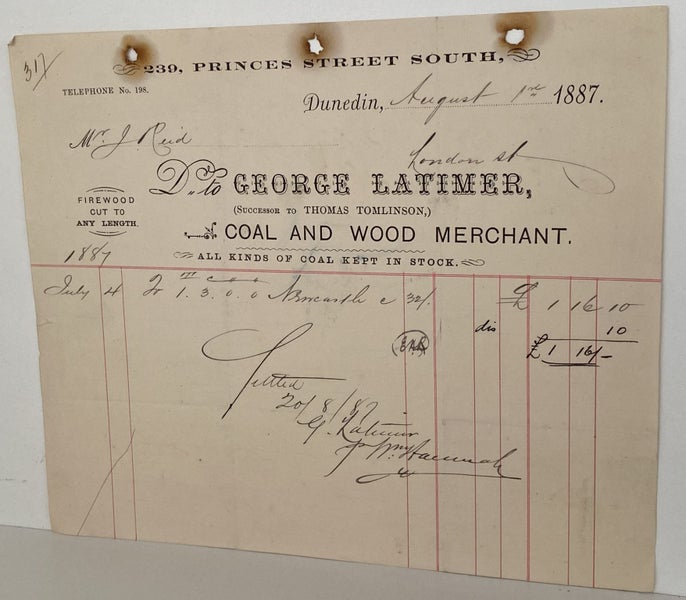 317
239, PRINCES STREET SOUTH,
TELEPHONE No. 198.
Dunedin, August 1st 1887.
Mr. J. Reid
London st
Dr. to GEORGE LATIMER,
(SUCCESSOR TO THOMAS TOMLINSON,)
FIREWOOD
CUT TO
ANY LENGTH.
COAL AND WOOD MERCHANT.
ALL KINDS OF COAL KEPT IN STOCK.
1887
July 4 To 1. 3. 0. 0 Newcastle c 32/. £ 1 16 10
dis 10
£ 1 16/-
Settled
20/8/87
G. Latimer